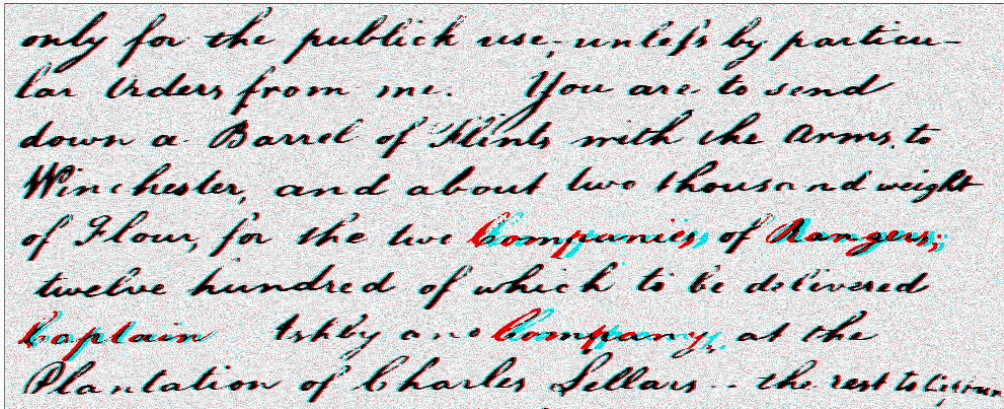 only for the publick use, unless by particu-
lar Orders from me. You are to send
down a Barrel of Flints with the Arms, to
Winchester, and about two thousand weight
of Flour, for the two Companies of Rangers;
twelve hundred of which to be delivered
Captain Ashby and Company, at the
Plantation of Charles Sellars -- the rest to